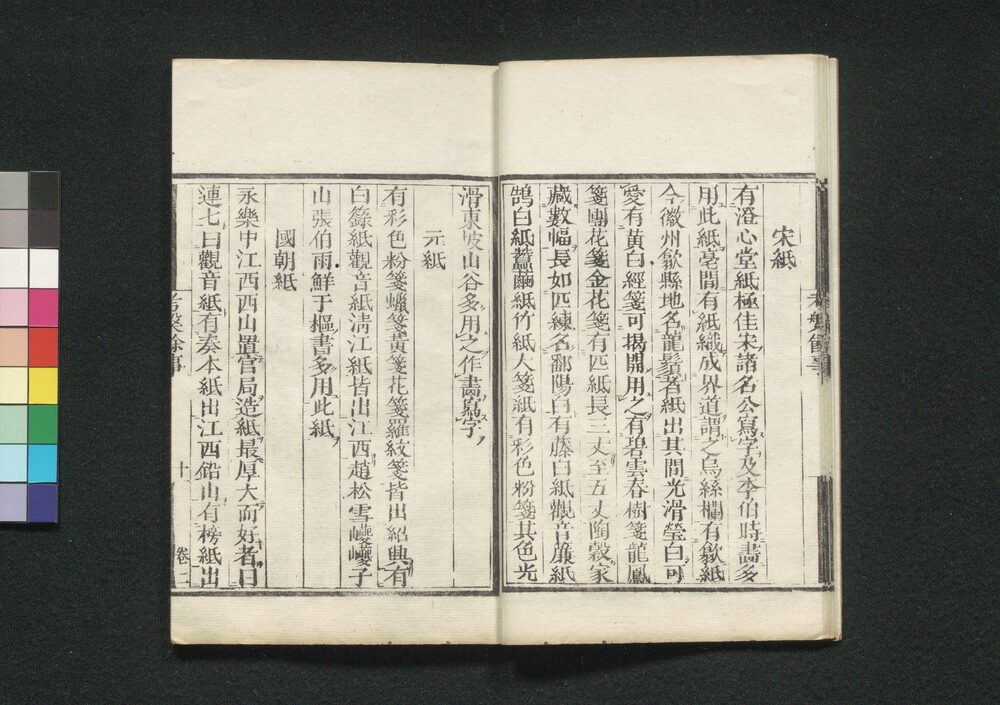 宋紙
有澄心堂紙極佳宋諸名公寫字及李伯時畫多
用此紙毫間有紙織成界道謂之烏絲欄有歙紙
今徽州歙縣地名龍鬚者紙出其間光滑瑩白可
愛有黃白經箋可揭開用之有碧雲春樹箋龍鳳
箋團花箋金花箋有匹紙長三丈至五丈陶穀家
藏數幅長如匹練名鄱陽白有藤白紙觀音簾紙
鵠白紙蠶繭紙竹紙大箋紙有彩色粉箋其色光
滑東坡山谷多用之作畫寫字
元紙
有彩色粉箋蠟箋黃箋花箋羅紋箋皆出紹興有
白籙紙觀音紙清江紙皆出江西趙松雪巙巙子
山張伯雨鮮于樞書多用此紙
國朝紙
永樂中江西西山置官局造紙最厚大而好者曰
連七曰觀音紙有奏本紙出江西鉛山有榜紙出
考槃餘事
十
卷二